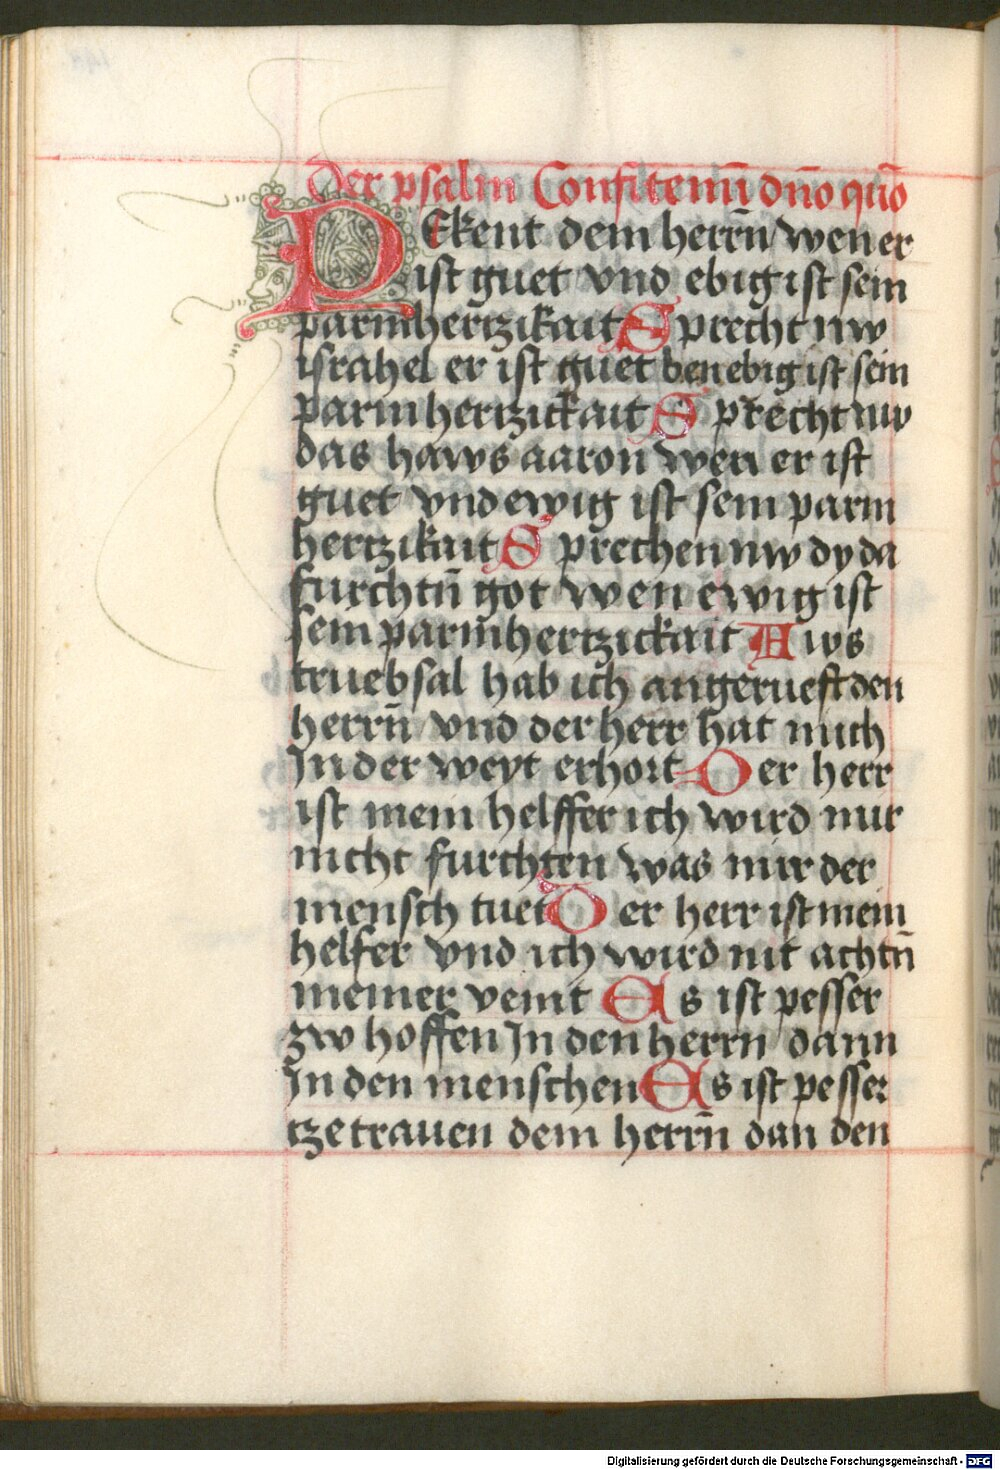 Der psalm Confitemĩ dño quõ
PEkent dem herrñ wen er
ist guet vnd ebig ist sein
parmhertzikait Sprecht nw
israhel er ist guet ben ebig ist sein
parmhertzickait Sprecht nw
das haws aaron wen er ist
guet vnd ewig ist sein parm
hertzikait Sprechen nw dy da
furchtñ got wen ewig ist
sein parm̃hertzickait Aws
truebsal hab ich angerueft den
herrñ vnd der herr hat mich
In der weyt erhort Der herr
ist mein helffer ich wird mir
nicht furchten was mir der
mensch tuet Der herr ist mein
helfer vnd ich wird nit achtñ
meiner veint Es ist pesser
zw hoffen In den herrn dann
In den menschen Es ist pesser
tze trauen dem herrñ dan den
Digitalisierung gefördert durch die Deutsche Forschungsgemeinschaft - DFG